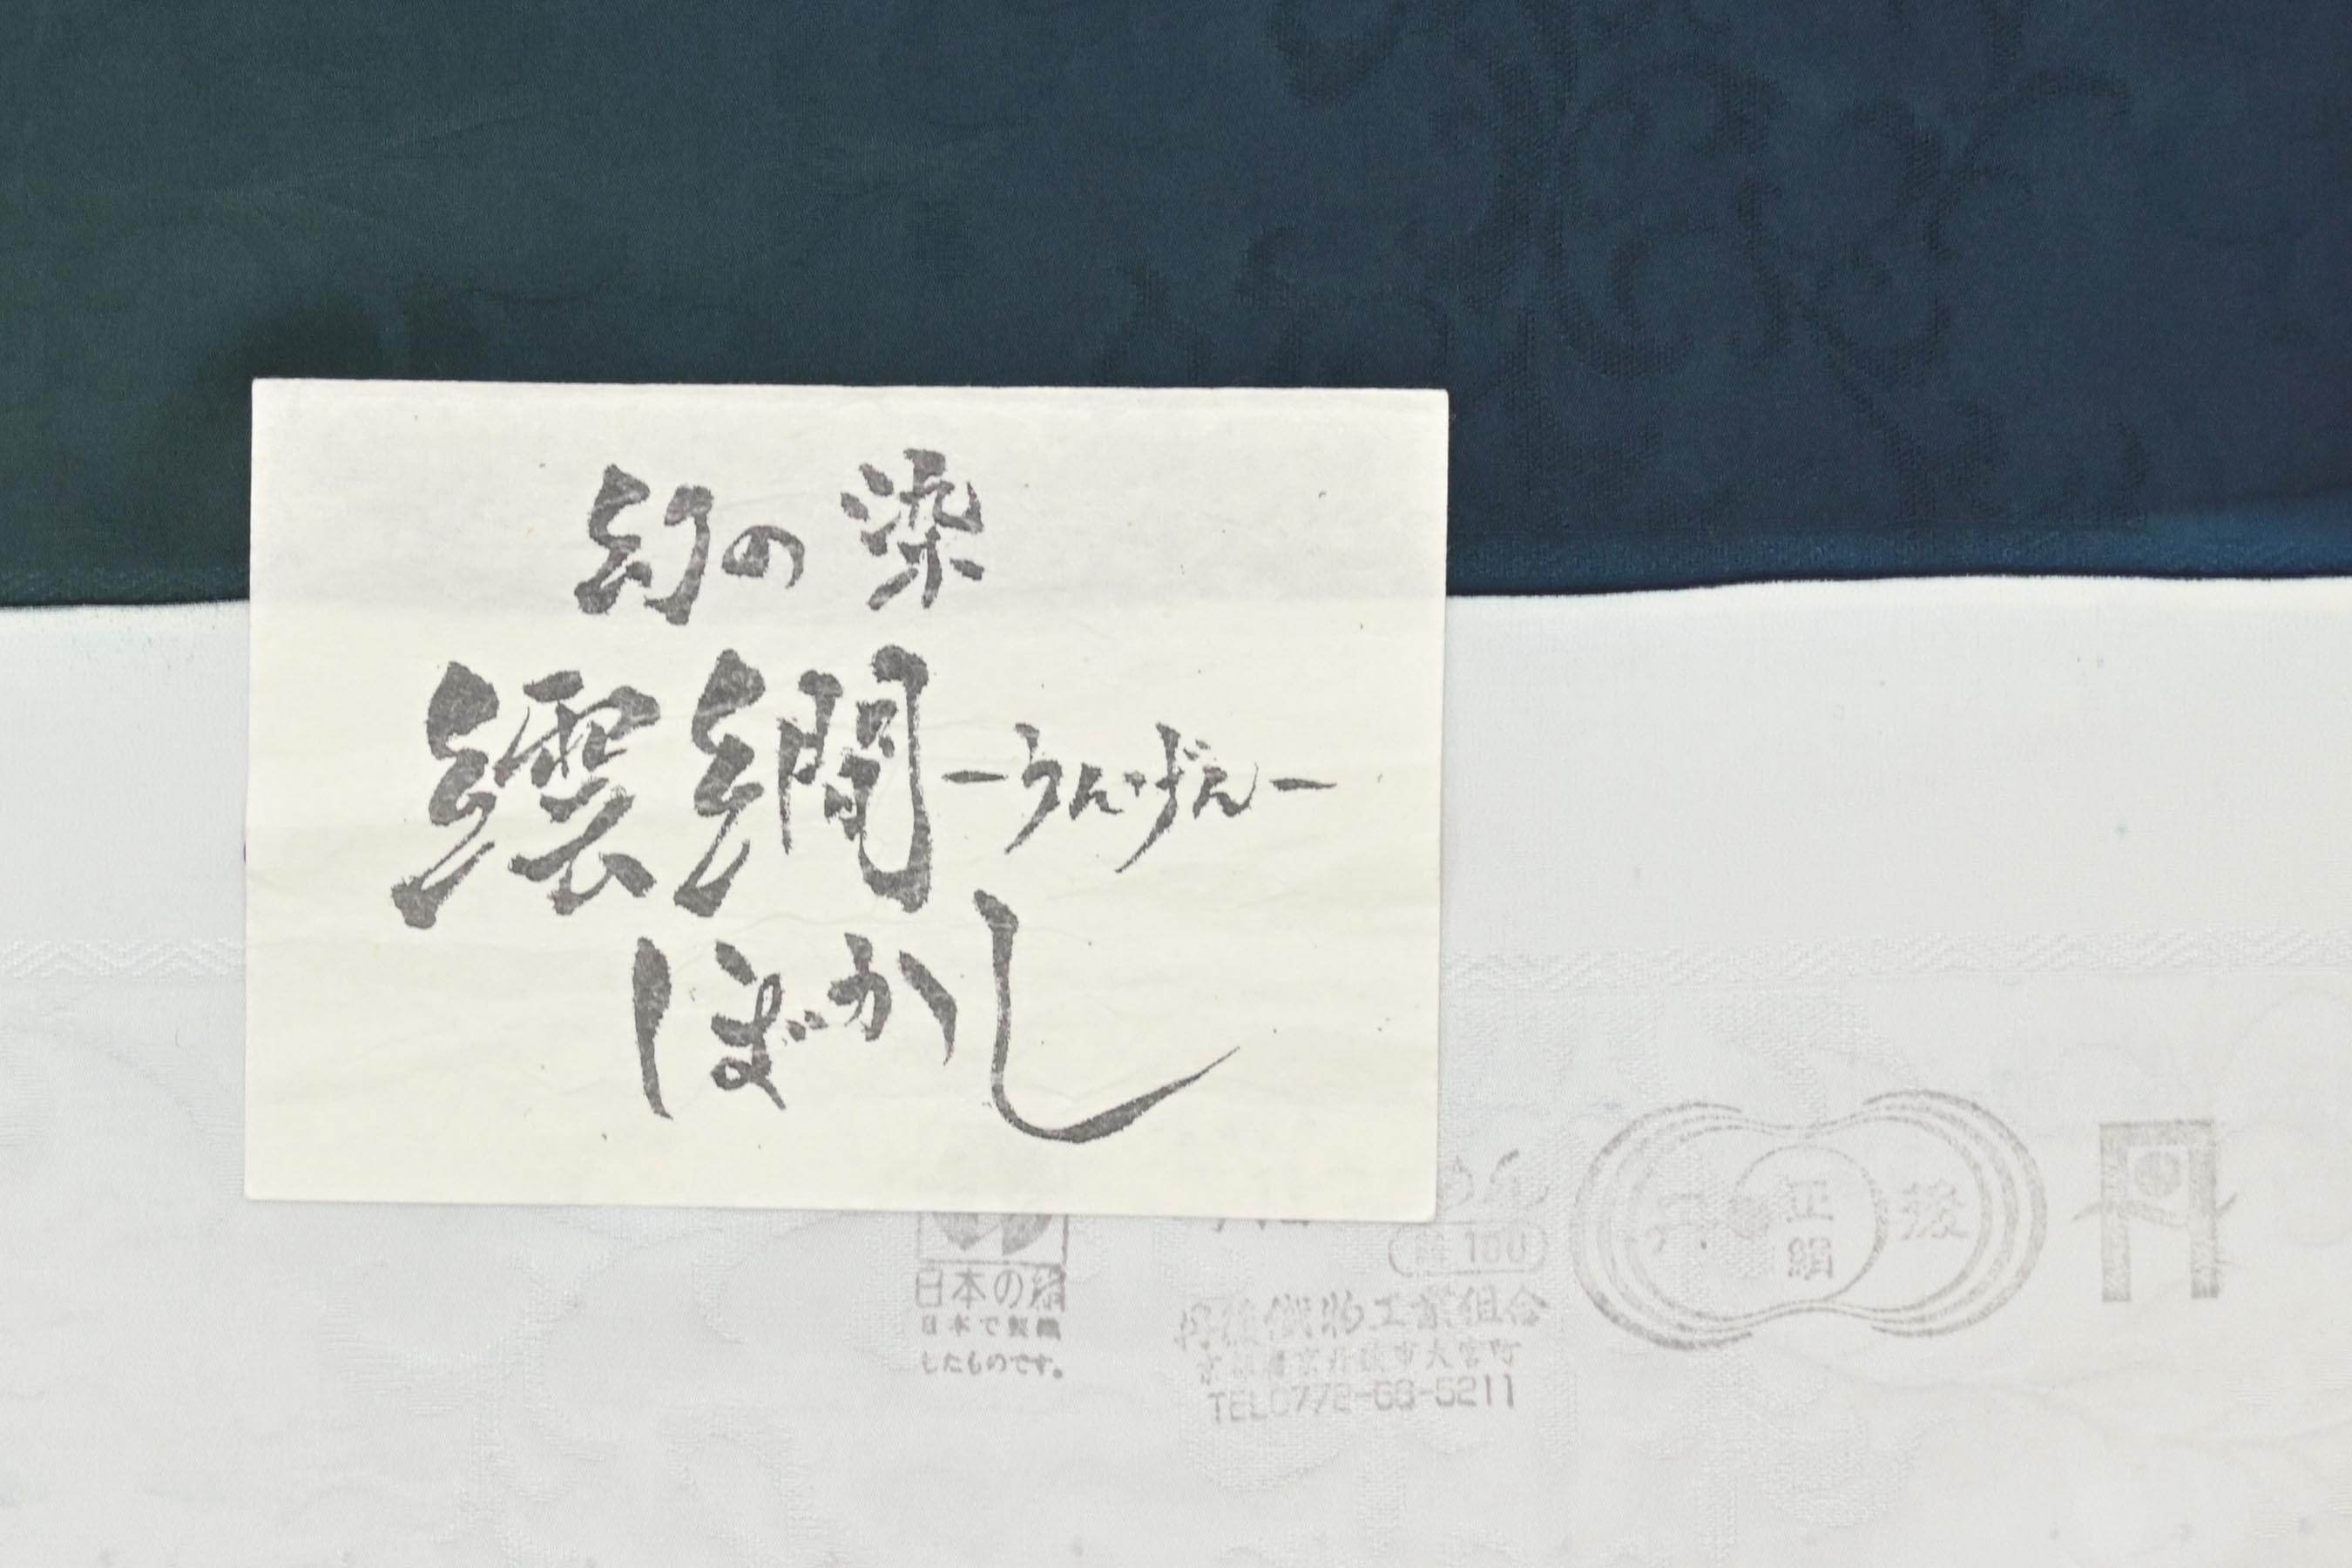 幻の染
繧繝-うんげん-
ぼかし
丹 正絹 後
絹 100
日本の絹
日本で製織
したものです。
丹後織物工業組合
京都府京丹後市大宮町
TEL0772-68-5211